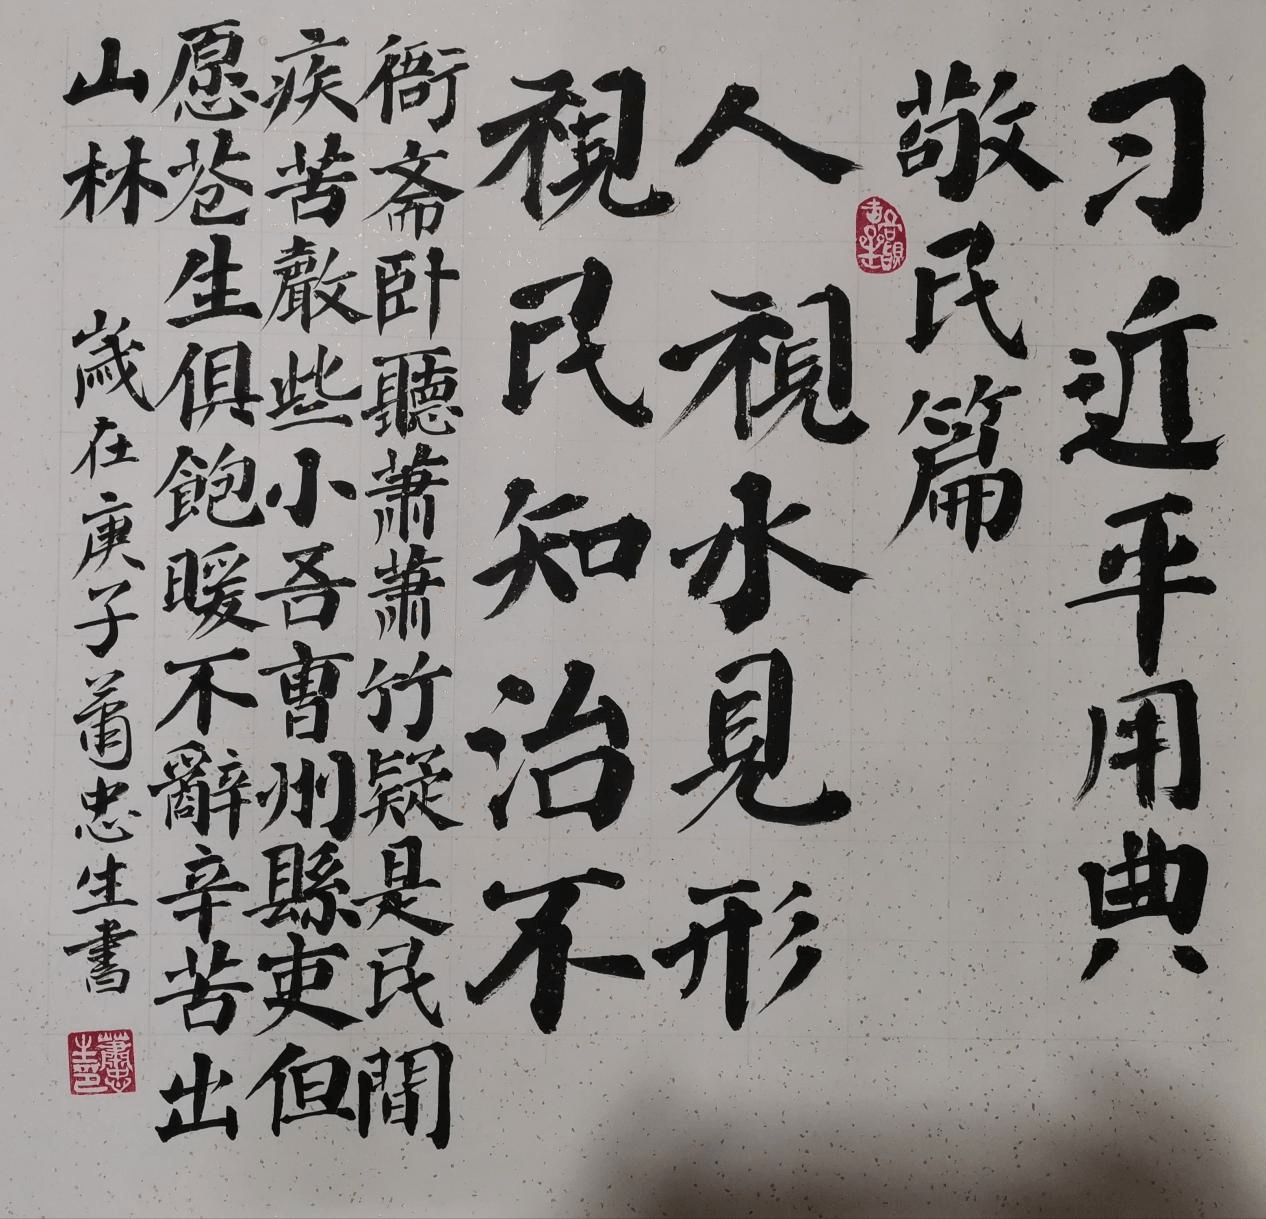 习近平用典
敬民篇
人視水見形
視民知治不
衙斋卧聽萧萧竹疑是民間
疾苦聲些小吾曹州縣吏但
愿苍生俱飽暖不辭辛苦出
山林
歲在庚子萧忠生書
蕭忠生印